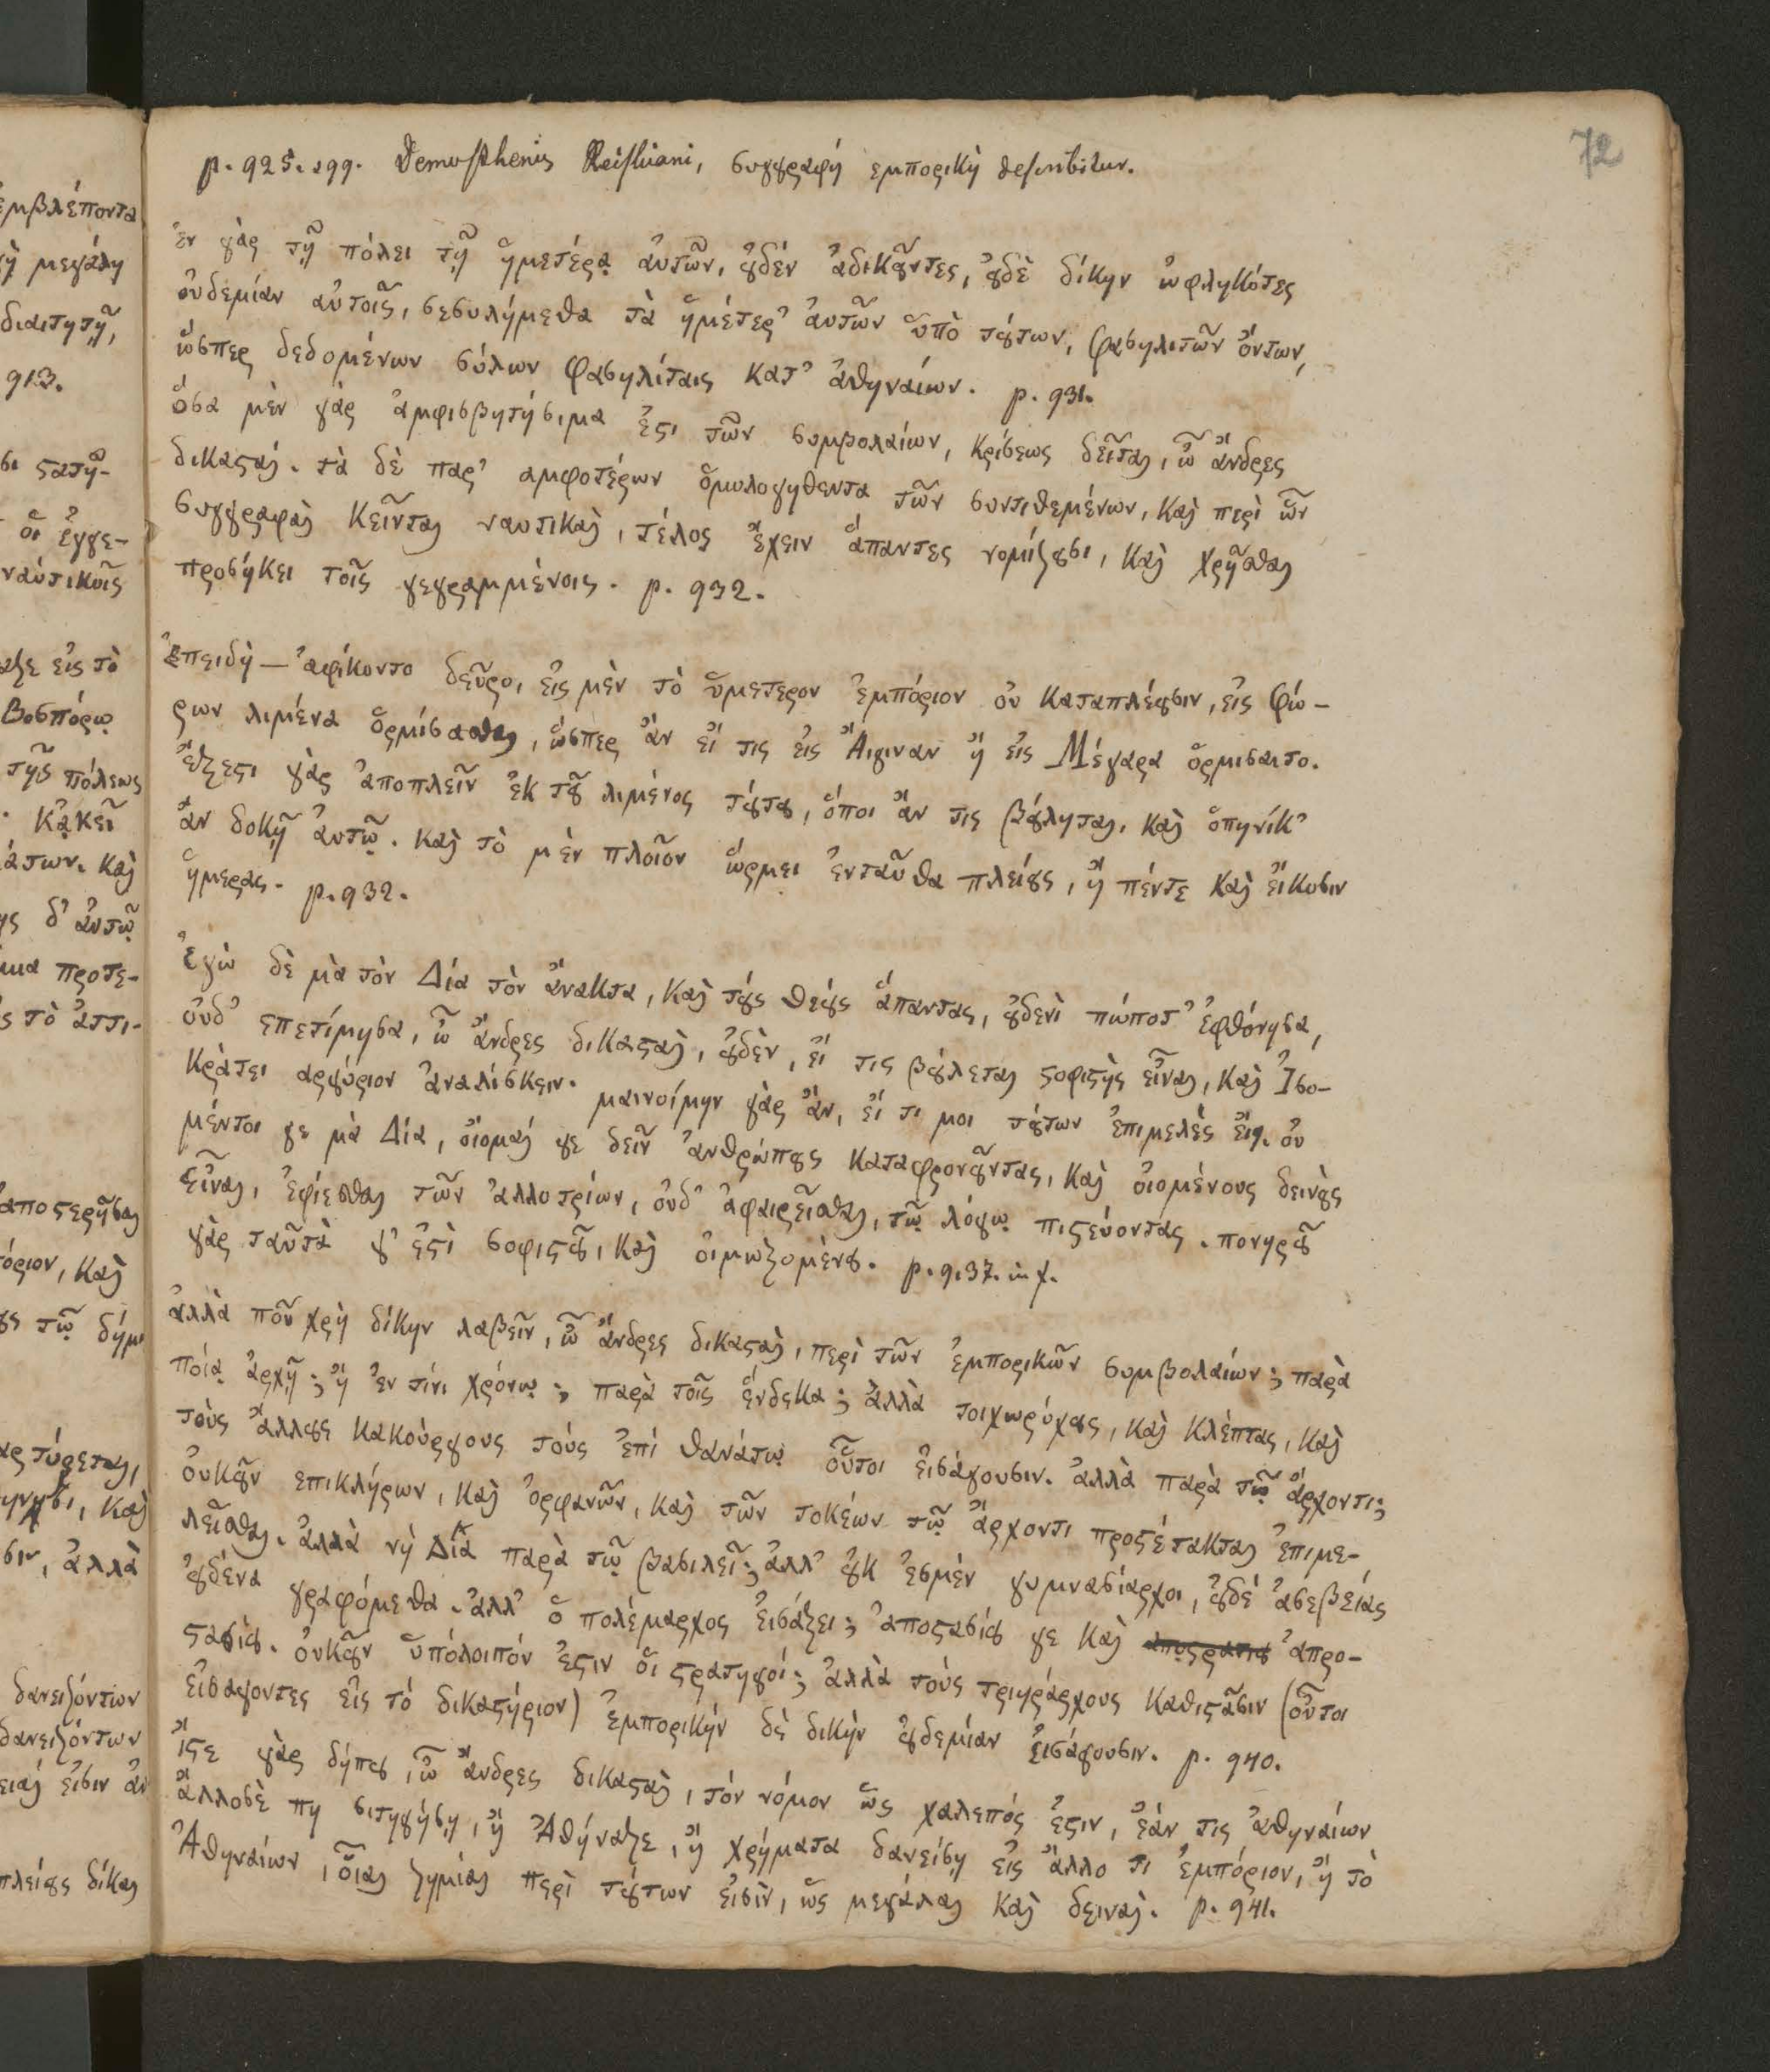 72
p. 925. sqq. Demosthenis Reiskiani, συγγραφή εμπορική describitur.
ἐν γὰρ τῇ πόλει τῇ ἡμετέρᾳ ἀυτῶν, ȣ̓δέν ἀδικȣ͂ντες, ȣ̓δὲ δίκην ὠφληκότες
ὀυδεμίαν αὐτοῖς, σεσυλήμεθα τὰ ἡμέτερ' ἀυτῶν ὑπὸ τȣ́των, Φασηλιτῶν ὄντων,
ὥσπερ δεδομένων σύλων Φασηλίταις κατ' ἀθηναίων. p. 931.
ὅσα μὲν γὰρ ἀμφισβητήσιμα ἐϛι τῶν συμβολαίων, κρίσεως δεῖται, ὦ ἄνδρες
δικαϛαί. τὰ δὲ παρ' αμφοτέρων ὁμολογηθεντα τῶν συντιθεμένων, καὶ περὶ ὧν
συγγραφαὶ κεῖνται ναυτικαὶ, τέλος ἔχειν ἅπαντες νομίζȣσι, καὶ χρῆσθαι
προσήκει τοῖς γεγραμμένοις. p. 932.
ἐπειδὴ — ἀφίκοντο δεῦρο, ἐις μὲν τὸ ὑμετερον ἐμπόριον ὀυ καταπλέȣσιν, ἐις Φώ-
ρων λιμένα ὁρμίσασθαι, ὥσπερ ἂν ἐί τις ἐις Ἄιγιναν ἢ ἐις Μέγαρα ὁρμισαιτο.
ἔξεϛι γὰρ ἀποπλεῖν ἐκ τȣ͂ λιμένος τȣ́τȣ, ὅποι ἂν τις βȣ́ληται, καὶ ὁπηνίκ'
ἂν δοκῇ ἀυτῷ. καὶ τὸ μὲν πλοῖον ὥρμει ἐνταῦθα πλείȣς, ἢ πέντε καὶ ἔικοσιν
ἡμερας. p. 932.
ἐγὼ δὲ μὰ τὸν Δία τὸν ἄνακτα, καὶ τȣ́ς θεȣ́ς ἅπαντας, ȣ̓δενὶ πώποτ' ἐφθόνησα,
ὀυδ' επετίμησα, ὦ ἄνδρες δικαϛαὶ, ȣ̓δὲν, ἐί τις βȣ́λεται σοφιϛὴς εἶναι, καὶ Ἰσο-
κράτει αργύριον ἀναλίσκειν. μαινοίμην γὰρ ἂν, ἐί τι μοι τȣ́των ἐπιμελὲς ἐίη. ὀυ
μέντοι γε μὰ Δία, ὄιομαί γε δεῖν ἀνθρώπȣς καταφρονȣ͂ντας, καὶ ὀιομένους δεινȣ̀ς
εἶναι, ἐφίεσθαι τῶν ἀλλοτρίων, ὀυδ' ἀφαιρεῖσθαι, τῷ λόγῳ πιϛεύοντας. πονηρȣ͂
γὰρ ταῦτὰ γ' ἐϛὶ σοφιϛȣ͂, καὶ ὀιμωξομένȣ. p. 937. in f.
ἀλλὰ ποῦ χρὴ δίκην λαβεῖν, ὦ ἄνδρες δικαϛαὶ, περὶ τῶν ἐμπορικῶν συμβολαίων; παρὰ
ποίᾳ ἀρχῇ; ἢ ἐν τίνι χρόνῳ; παρὰ τοῖς ἕνδεκα; ἀλλὰ τοιχωρύχȣς, καὶ κλέπτας, καὶ
τοὺς ἄλλȣς κακούργους τοὺς ἐπί θανάτῳ οὗτοι ἐισάγουσιν. ἀλλὰ παρὰ τῷ ἄρχοντι;
ὀυκȣ͂ν επικλήρων, καὶ ὀρφανῶν, καὶ τῶν τοκέων τῷ ἄρχοντι προςέτακται ἐπιμε-
λεῖσθαι. ἀλλὰ νὴ Δία παρὰ τῷ βασιλεῖ; ἀλλ' ȣ̓κ ἐσμὲν γυμνασίαρχοι, ȣ̓δὲ ἀσεβείας
ȣ̓δένα γραφόμεθα. ἀλλ' ὁ πολέμαρχος ἐισάξει; ἀποϛασίȣ γε καὶ ἀπρο-
ϛασίȣ. ὀυκȣ͂ν ὑπόλοιπόν ἐϛιν ὁι ϛρατηγοί; ἀλλὰ τοὺς τριηράρχους καθιϛᾶσιν (οὗτοι
ἐισαγοντες ἐις τό δικαϛήριον) ἐμπορικήν δὲ δικὴν ȣ̓δεμίαν ἐισάγουσιν. p. 940.
ἴϛε γὰρ δήπȣ, ὦ ἄνδρες δικαϛαὶ, τόν νόμον ὡς χαλεπός ἐϛιν, ἐάν τις ἀθηναίων
ἄλλοσὲ πη σιτηγήσῃ, ἢ Ἀθήναζε, ἢ χρήματα δανείσῃ ἐις ἄλλο τι ἐμπόριον, ἢ τὸ
Ἀθηναίων, οἷαι ζημίαι περὶ τȣ́των ἐισὶν, ὡς μεγάλαι καὶ δειναὶ. p. 941.